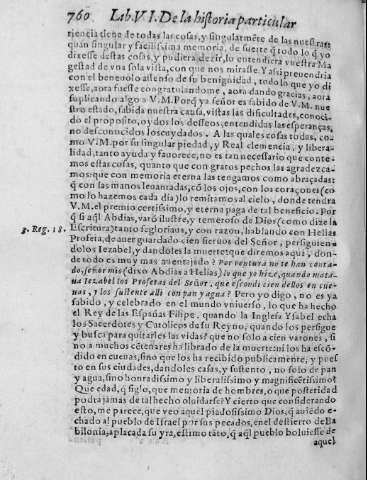 760 Lib. VI. De la historia particular
riencia tiene de todas las cosas, y singularmẽte de las nuestras
quan singular y facilissima memoria, de suerte q̃ todo lo q̃ yo
dixesse destas cosas, y pudiera dezir, lo entendiera vuestra Ma
gestad de vna sola vista, con que nos mirasse. Y assi preuendria
con el beneuolo assenso de su benignidad, todo lo que yo di
xesse, aora fuesse congratulandome, aora dando gracias, aora
suplicando algo a V.M. Porq̃ ya señor es sabido de V.M. nue
stro estado, sabida nuestra causa, vistas las dificultades, conoci-
do el proposito, oydos los desseos, entendidas las esperanças,
no desconocidos los cuydados. A las quales cosas todas, co-
mo V.M. por su singular piedad, y Real clemencia, y libera-
lidad, tanto ayuda y fauorece, no es tan necessario que conte-
mos estas cosas, quanto que con gratos pechos las agradezca-
mos: que con memoria eterna las tengamos como abraçadas:
q̃ con las manos leuantadas, cõ los ojos, con los coraçones (co-
mo lo hazemos cada dia) lo remitamos al cielo, donde tendra
V.M. el premio certissimo, y eterna paga de tal beneficio. Por
q̃ si aql̃ Abdias, varõ ilustre, y temeroso de Dios (como dize la
3. Reg. 18. Escritura) tanto se gloriaua, y con razon, hablando con Helias
Profeta, de auer guardado cien sieruos del Señor, persiguien
dolos Iezabel, y dandoles la muerte: que diremos aqui, don-
de todo es muy mas auentajado? Por ventura no te han conta-
do, señor mio (dixo Abdias a Helias) lo que yo hize, quando mata-
ua Iezabel los Profetas del Señor, que escondi cien dellos en cue-
uas, y los sustente alli con pan y agua? Pero yo digo, no es ya
sabido, y celebrado en el mundo vniuerso, lo que ha hecho
el Rey de las Españas Filipe, quando la Inglesa Ysabel echa
los Sacerdotes y Catolicos de su Reyno, quando los persigue
y busca para quitarles las vidas? que no solo a cien varones, si
no a muchos cẽtenares ha librado de la muerte: ni los ha escõ-
dido en cueuas, sino que los ha recibido publicamente, y pues
to en sus ciudades, dandoles casas, y sustento, no solo de pan
y agua, sino honradissimo y liberalissimo y magnificẽtissimo?
Que edad, q̃ siglo, que memoria de hombres, o que posteridad
podra jamas de tal hecho oluidarse? Y cierto que considerando
esto, me parece, que veo aquel piadosissimo Dios, q̃ auiẽdo e-
chado al pueblo de Israel por sus pecados, en el destierro de Ba
bilonia, aplacada su yra, estimo tãto, q̃ aql̃ pueblo boluiesse de
aquel